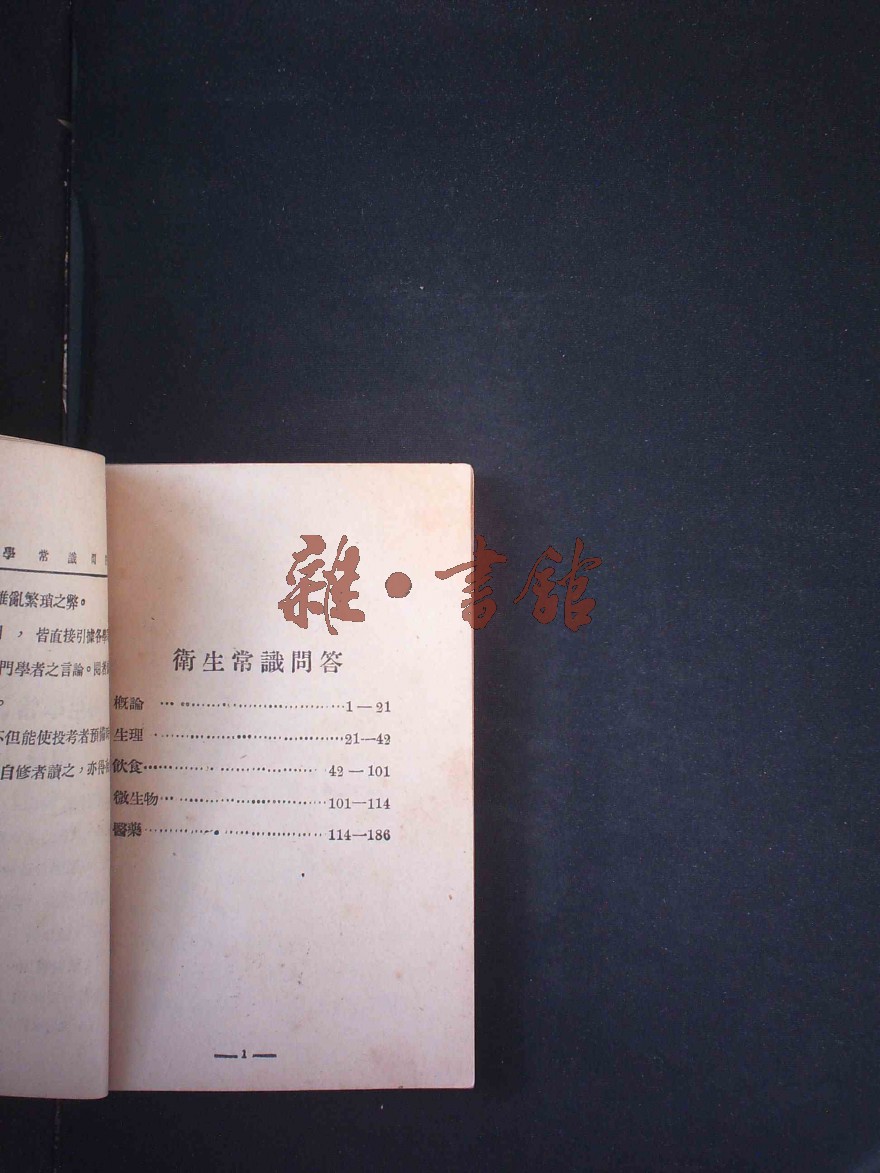 學常識問
亂繁瑣之弊。
，皆直接引據各學
門學者之言論。閱
。
不但能使投考者預備
自修者讀之，亦得
衛生常識問答
概論 1—21
生理 21—42
飲食 42—101
微生物 101—114
醫藥 114—186
—1—
雜·書館